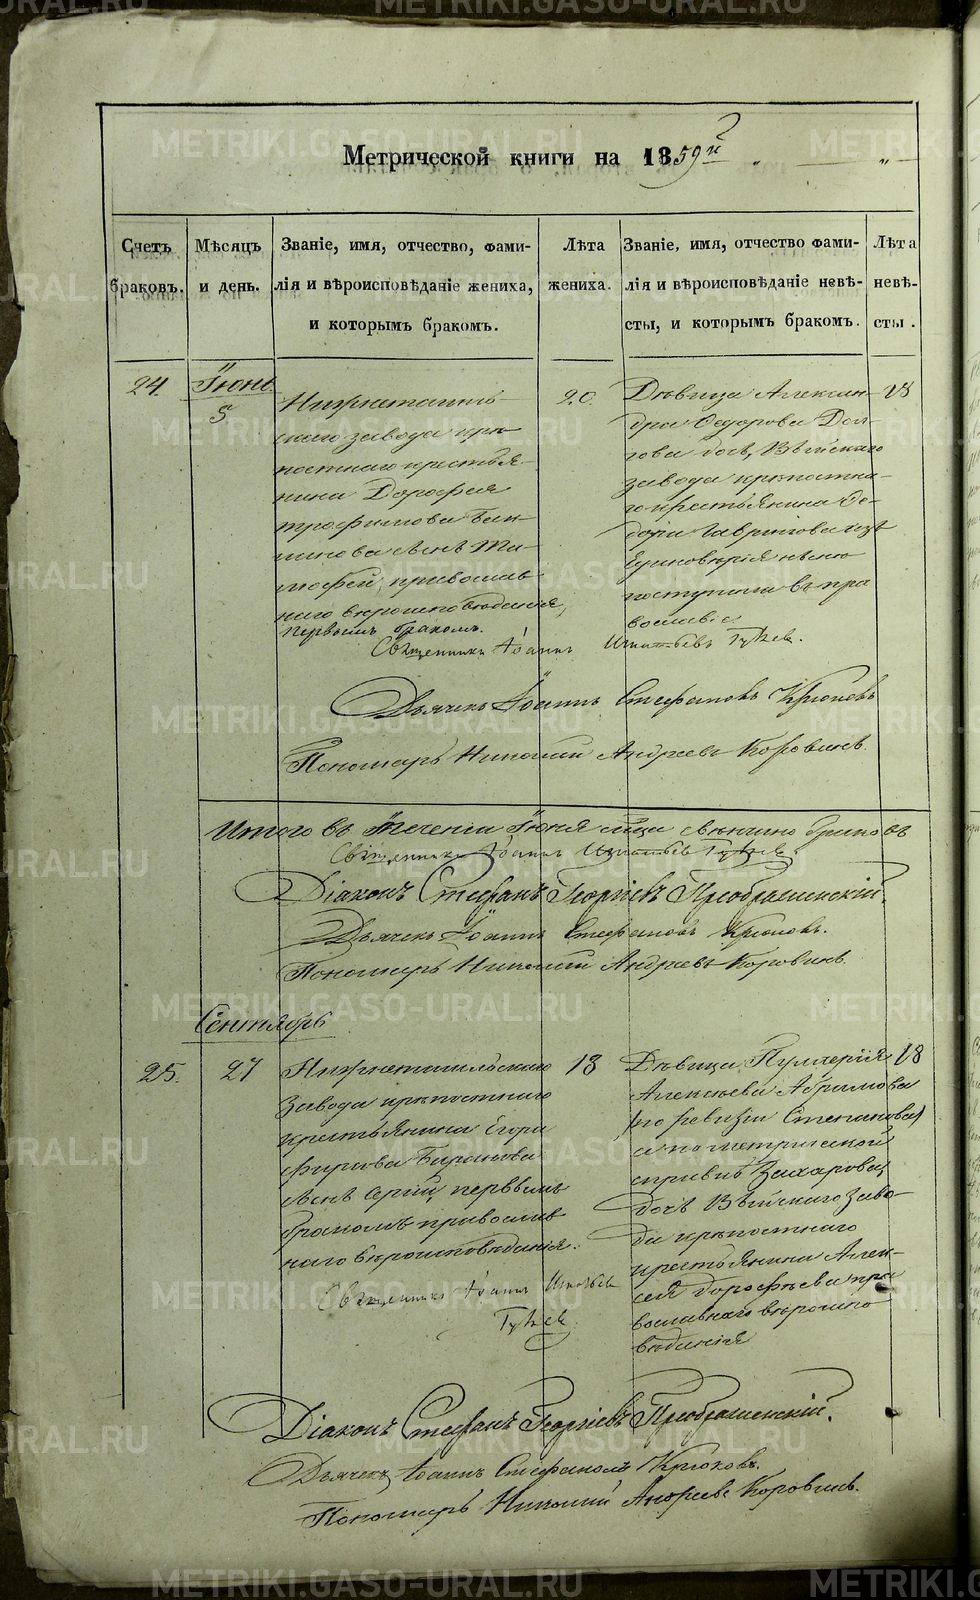 METRIKI.GASO-URAL.RU
Метрической книги на 1859й
Счетъ браковъ.
Мѣсяцъ и день.
Званіе, имя, отчество, фами-
лія и вѣроисповѣданіе жениха,
и которымъ бракомъ.
Лѣта жениха.
Званіе, имя, отчество фами-
лія и вѣроисповѣданіе невѣ-
сты, и которымъ бракомъ.
Лѣта невѣ-
сты.
24.
Іюнь
5
Нижнетагиль-
скаго завода крѣ-
постнаго крестья-
нина Дорофея
Трофимова
сынъ Ти-
мофей, православ-
наго вѣроисповѣданія,
первымъ бракомъ.
20.
Дѣвица Алексан-
дра Федорова
дочь, Выйскаго
завода крѣпостна-
го крестьянина Фе-
дора Гаврилова изъ
Единовѣрія
поступила въ пра
вославіе
18
Священникъ Іоаннъ Игнатьевъ
Дьячекъ Іоаннъ Стефановъ Крюковъ
Пономарь Николай Андреевъ Коровинъ.
Итого въ теченіи Іюня м-ца браковъ
Священникъ Іоаннъ Игнатьевъ
Діаконъ Стефанъ Георгіевъ Преображенскій.
Дьячекъ Іоаннъ Стефановъ Крюковъ.
Пономарь Николай Андреевъ Коровинъ.
Сентябрь
25.
27
Нижнетагильскаго
завода крѣпостнаго
крестьянина Егора
Фирсова Баранова
сынъ первымъ
бракомъ православ
наго вѣроисповѣданія.
18
Дѣвица Пульхерія
Алексѣева Абрамова
(по ревизіи Степанова)
а по метрической
Захарова,
дочь Выйскаго заво-
да крѣпостнаго
крестьянина Алек-
сея Дорофѣева пра
вославнаго вѣроиспо
вѣданія
18
Священникъ Іоаннъ Игнатьевъ
Діаконъ Стефанъ Георгіевъ Преображенскій.
Дьячекъ Іоаннъ Стефановъ Крюковъ.
Пономарь Николай Андреевъ Коровинъ.